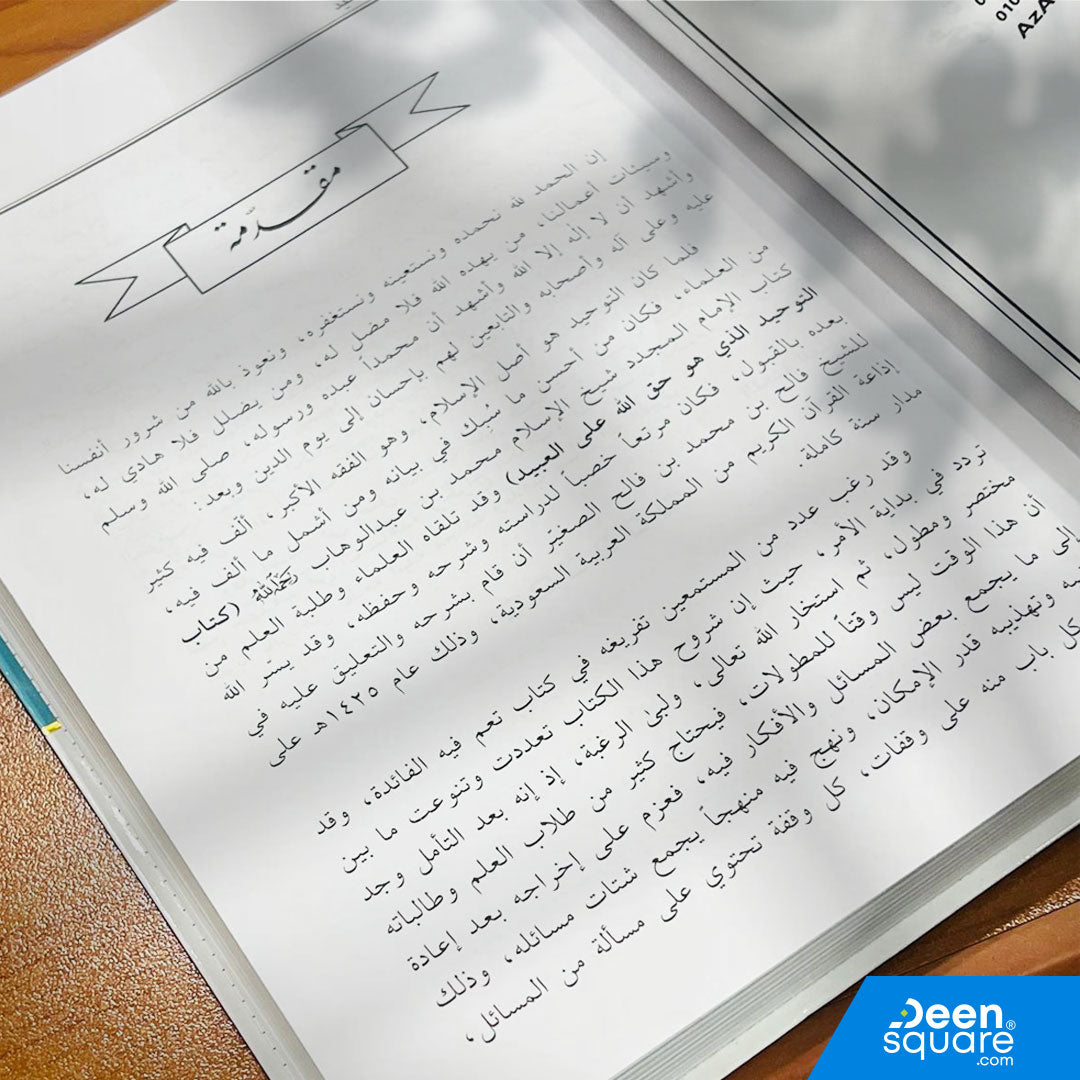 مقدّمة
إن الحمد لله نحمده ونستعينه ونستغفره، ونعوذ بالله من شرور أنفسنا
وسيئات أعمالنا، من يهده الله فلا مضل له، ومن يضلل فلا هادي له،
وأشهد أن لا إله إلا الله وأشهد أن محمداً عبده ورسوله، صلى الله وسلم
عليه وعلى آله وأصحابه والتابعين لهم بإحسان إلى يوم الدين وبعد:
فلما كان التوحيد هو أصل الإسلام، وهو الفقه الأكبر، ألّف فيه كثير
من العلماء، فكان من أحسن ما سُبك في بيانه ومن أشمل ما ألف فيه،
كتاب الإمام المجدد شيخ الإسلام محمد بن عبدالوهاب رحمه الله (كتاب
التوحيد الذي هو حق الله على العبيد) وقد تلقاه العلماء وطلبة العلم من
بعده بالقبول، فكان مرتعاً خصباً لدراسته وشرحه وحفظه، وقد يسّر الله
للشيخ فالح بن محمد بن فالح الصغيّر أن قام بشرحه والتعليق عليه في
إذاعة القرآن الكريم من المملكة العربية السعودية، وذلك عام ١٤٢٥هـ على
مدار سنة كاملة.
وقد رغب عدد من المستمعين تفريغه في كتاب تعم فيه الفائدة، وقد
تردد في بداية الأمر، حيث إن شروح هذا الكتاب تعددت وتنوعت ما بين
مختصر ومطول، ثم استخار الله تعالى، ولبىٰ الرغبة، إذ إنه بعد التأمل وجد
أن هذا الوقت ليس وقتاً للمطولات، فيحتاج كثير من طلاب العلم وطالباته
إلى ما يجمع بعض المسائل والأفكار فيه، فعزم على إخراجه بعد إعادة
وتهذيبه قدر الإمكان، ونهج فيه منهجاً يجمع شتات مسائله، وذلك
كل باب منه على وقفات، كل وقفة تحتوي على مسألة من المسائل،
010
AzA
Deen
square®
.com